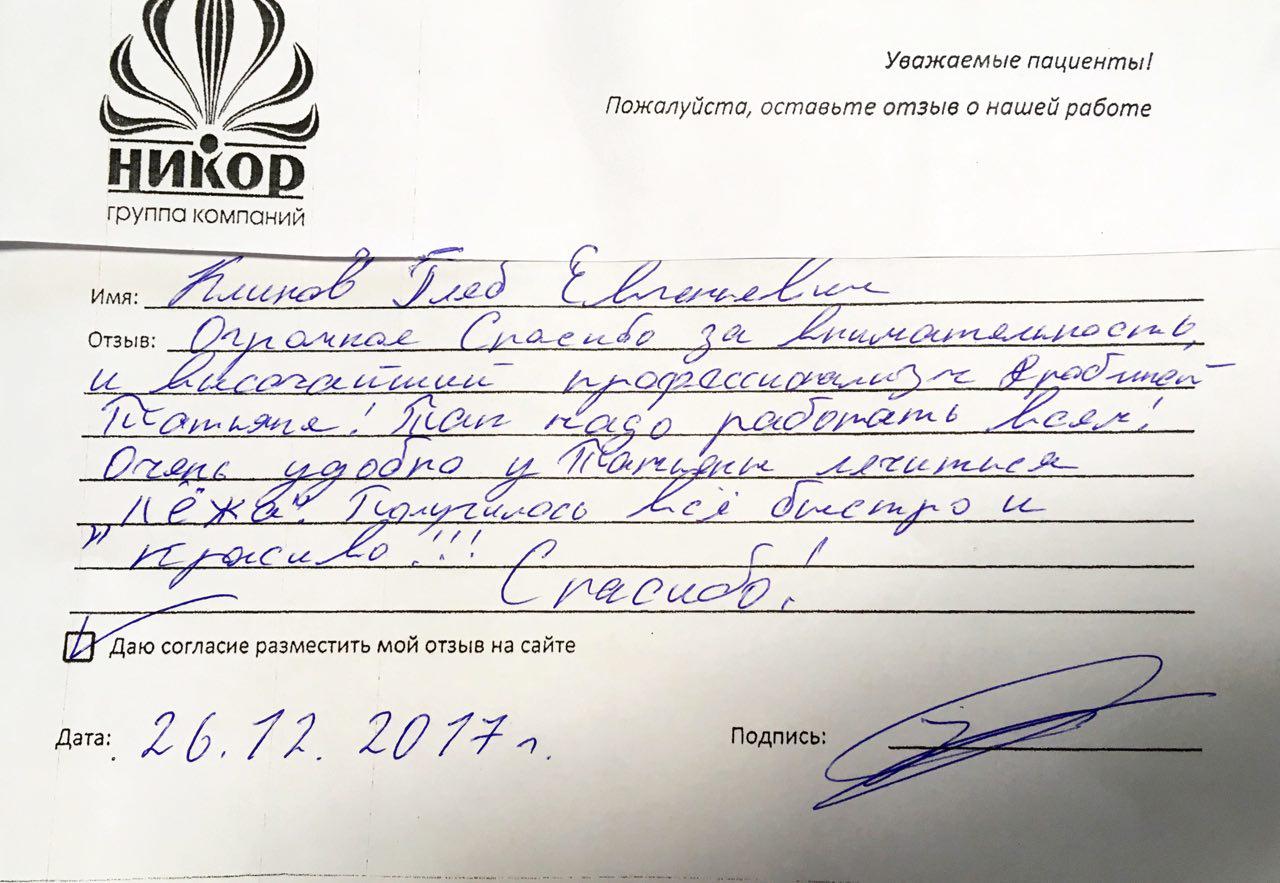 НИКОР
группа компаний
Уважаемые пациенты!
Пожалуйста, оставьте отзыв о нашей работе
Имя: Климов Глеб Евгеньевич
Отзыв: Огромное Спасибо за внимательность,
и высочайший профессионализм
Татьяне! Так надо работать всем!
Очень удобно у Татьяны лечиться
"лёжа". Получилось всё быстро и
красиво!!!
Спасибо!
Даю согласие разместить мой отзыв на сайте
Дата: 26.12.2017г.
Подпись: